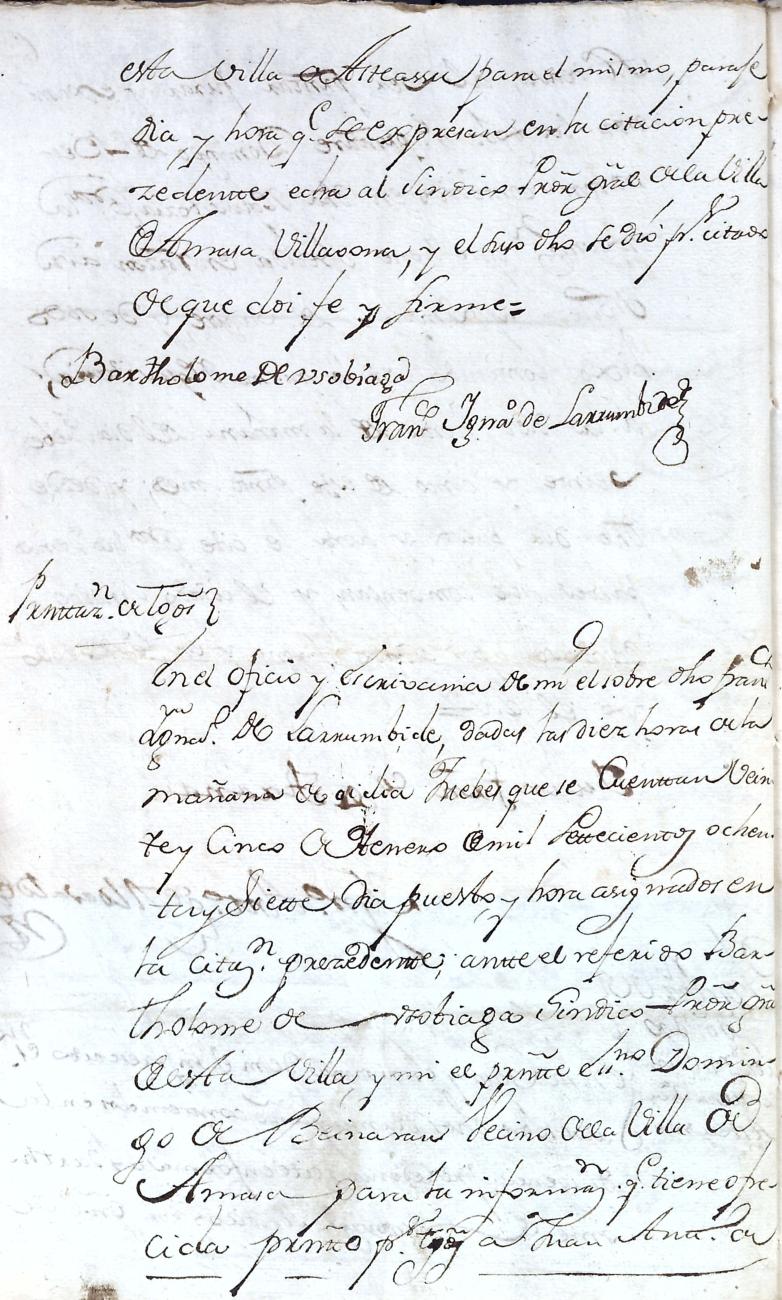 esta Villa de Asteassu para el mismo, parase
dia, y hora q.e se expresan en la citacion pre-
zedentte echa al Sindico Prōr grāl de la Villa
de Amasa Villavona, y el suso dho se dió p.r citado
de que doi fe y firme=
Bartholome De Usobiaga
Fran.co Ign.o de Larrumbide
Prnttaz.n de Tgōs
En el Oficio y Escrivania de mi el sobre dho Fran.co
Ign.o De Larrumbide, dadas las diez horas de la
mañana de oi dia Juebes que se Cuenttan Vein-
te y Cinco de Henero de mil Settecientos ochen-
ta y Siette dia puesto, y hora asignados en
la citaz.n prezedentte; antte el referido Bar-
tholome de Usobiaga Sindico Prōr grāl
de esta Villa, y mi el prnīte ess.no Domin-
go de Beinaran Vecino de la Villa de
Amasa para la informaz.n q.e tiene ofre-
cida prntto p.r tgō a Juan Antt.o de